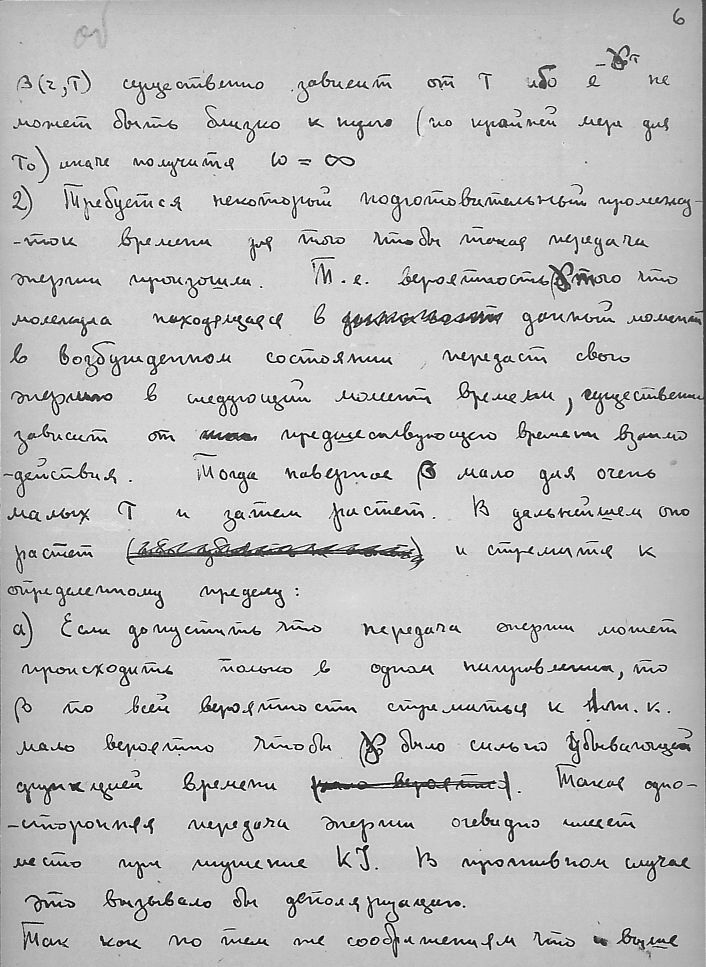 6
об
β(r,T) существенно зависит от T ибо e^-γT не
может быть близко к нулю (по крайней мере для
T₀) иначе получится ω = ∞
2) Требуется некоторый подготовительный промежу-
-ток времени для того чтобы такая передача
энергии произошла. Т.е. вероятность γ того что
молекула находящаяся в данный момент
в возбужденном состоянии передаст свою
энергию в следующий момент времени, существенно
зависит от предшествующего времени взаимо
-действия. Тогда наверное β мало для очень
малых T и затем растет. В дальнейшем оно
растет и стремится к
определенному пределу:
а) Если допустить что передача энергии может
происходить только в одном направлении, то
β по всей вероятности стремиться к 1 т.к.
мало вероятно чтобы γ было сильно убывающей
функцией времени (мало вероятно). Такая одно-
-сторонняя передача энергии очевидно имеет
место при тушение KJ. В противном случае
это вызывало бы деполяризацию.
Так как по тем же соображениям что и выше